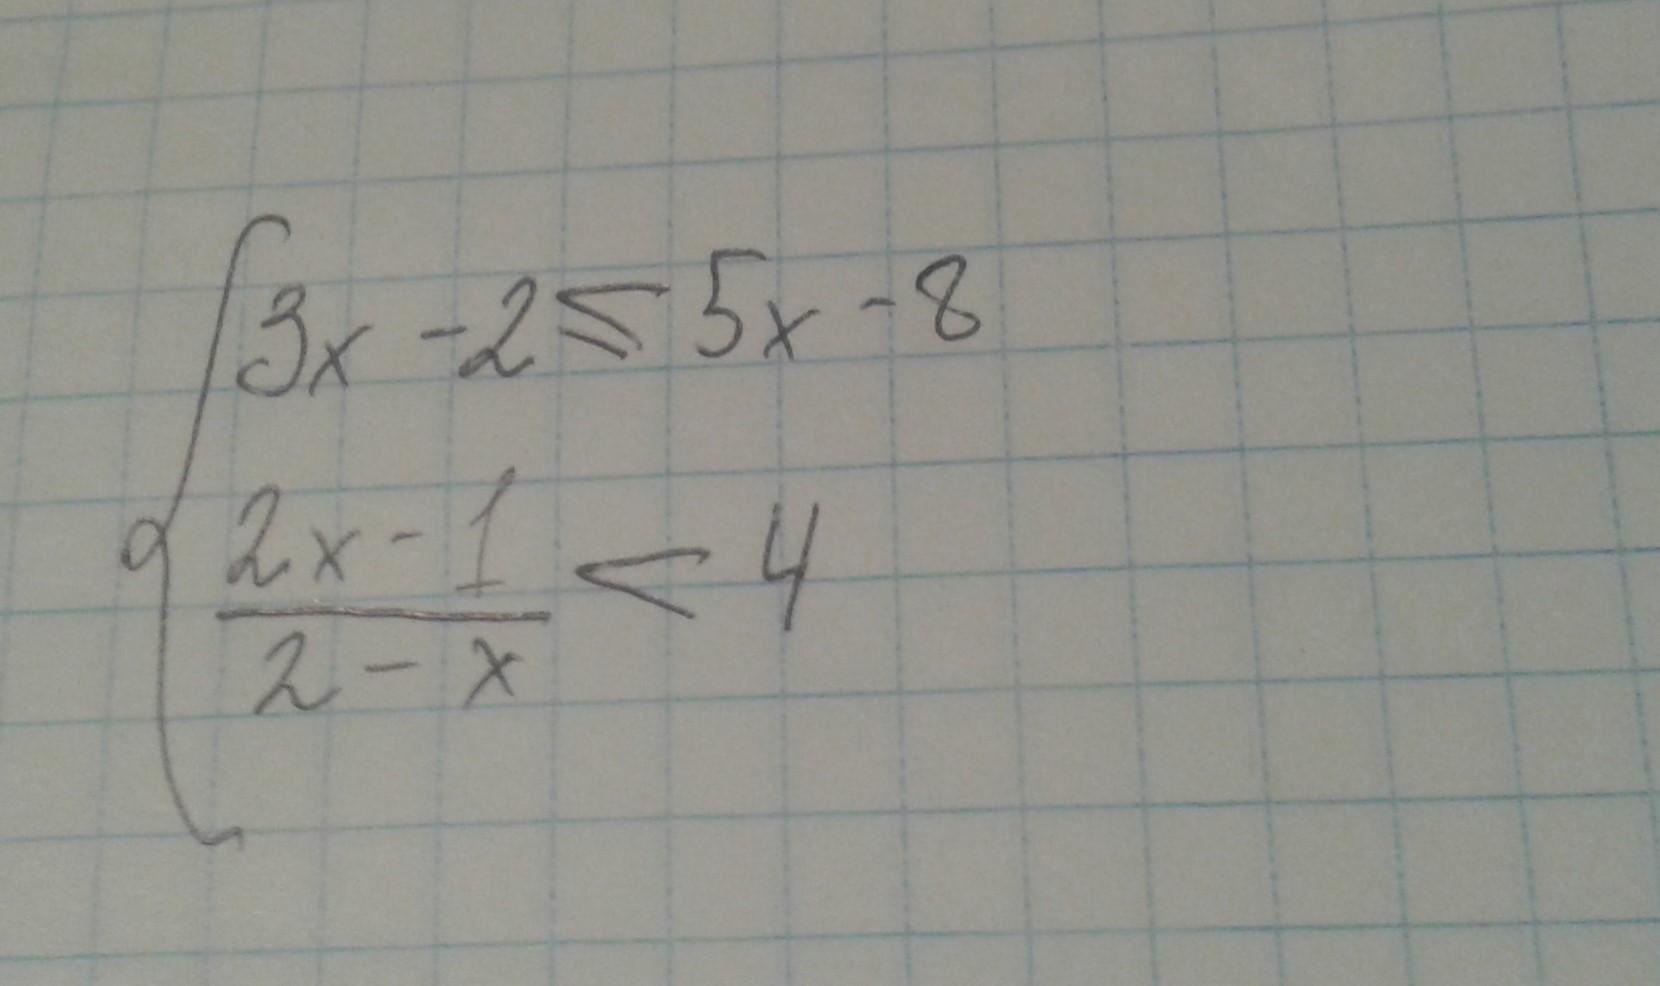 3x - 2 ≤ 5x - 8
2x - 1
/ 2 - x < 4